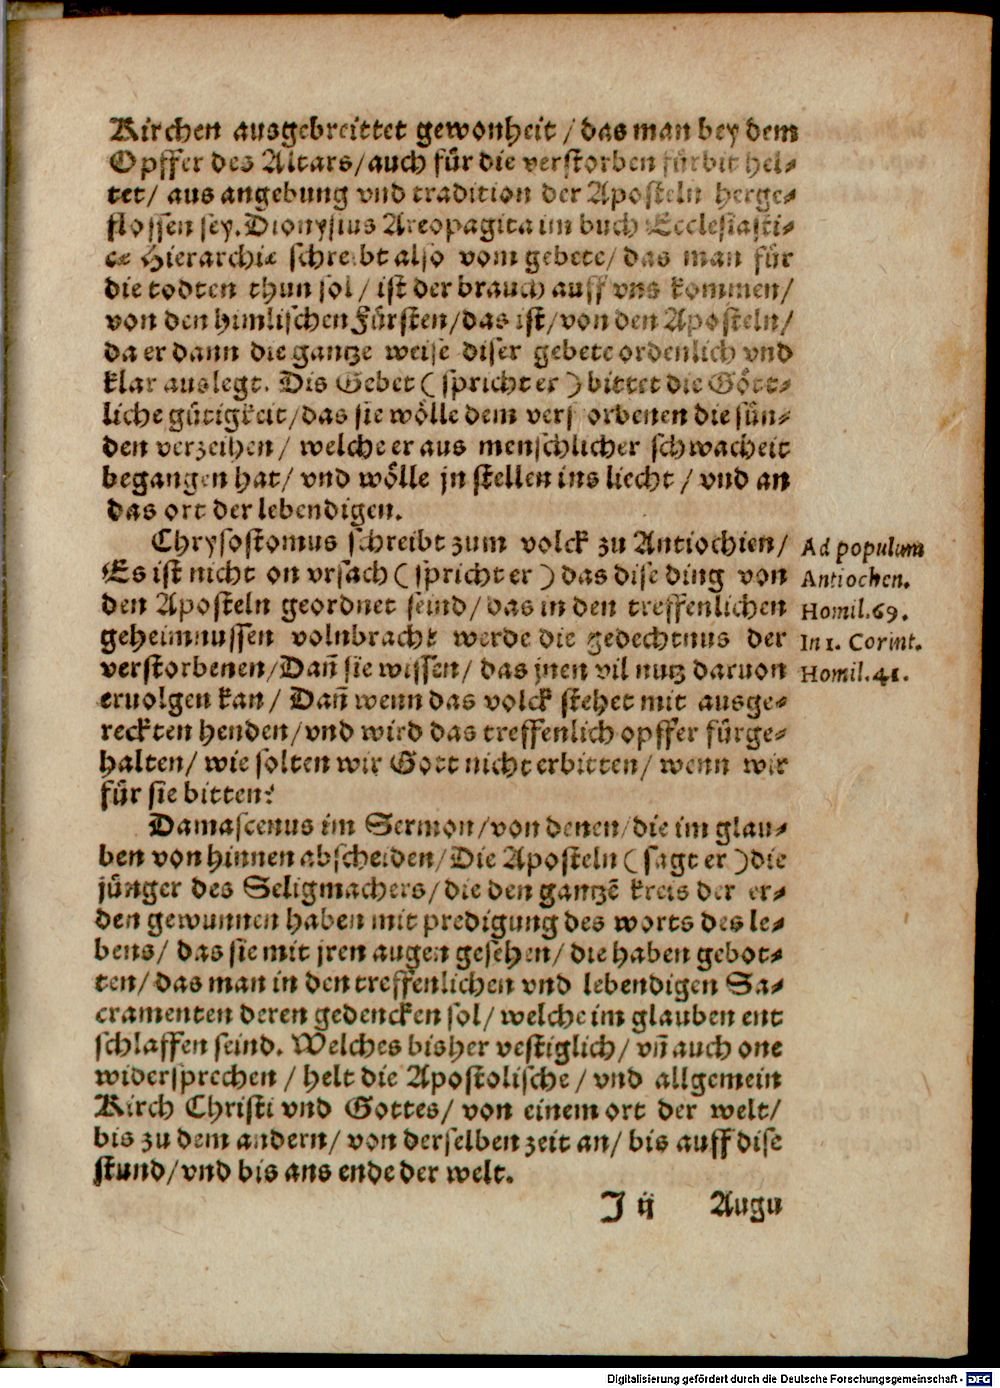 Kirchen ausgebreittet gewonheit / das man bey dem
Opffer des Altars / auch für die verstorben fürbit hel-
tet / aus angebung vnd tradition der Aposteln herge-
flossen sey. Dionysius Areopagita im buch Ecclesiasti-
ce Hierarchie schreibt also vom gebete / das man für
die todten thun sol / ist der brauch auff vns kommen /
von den himlischen Fürsten / das ist / von den Aposteln /
da er dann die gantze weise diser gebete ordenlich vnd
klar auslegt. Dis Gebet ( spricht er ) bittet die Gött-
liche gütigkeit / das sie wölle dem verstorbenen die sün-
den verzeihen / welche er aus menschlicher schwacheit
begangen hat / vnd wölle jn stellen ins liecht / vnd an
das ort der lebendigen.
Chrysostomus schreibt zum volck zu Antiochien /
Es ist nicht on vrsach ( spricht er ) das dise ding von
den Aposteln geordnet seind / das in den treffenlichen
geheimnussen volnbracht werde die gedechtnus der
verstorbenen / Dañ sie wissen / das jnen vil nutz daruon
eruolgen kan / Dañ wenn das volck stehet mit ausge-
reckten henden / vnd wird das treffenlich opffer fürge-
halten / wie solten wir Gott nicht erbitten / wenn wir
für sie bitten?
Ad populum
Antiochen.
Homil. 69.
In 1. Corint.
Homil. 41.
Damascenus im Sermon / von denen / die im glau-
ben von hinnen abscheiden / Die Aposteln ( sagt er ) die
jünger des Seligmachers / die den gantzē kreis der er-
den gewunnen haben mit predigung des worts des le-
bens / das sie mit jren augen gesehen / die haben gebot-
ten / das man in den treffenlichen vnd lebendigen Sa-
cramenten deren gedencken sol / welche im glauben ent
schlaffen seind. Welches bisher vestiglich / vñ auch one
widersprechen / helt die Apostolische / vnd allgemein
Kirch Christi vnd Gottes / von einem ort der welt /
bis zu dem andern / von derselben zeit an / bis auff dise
stund / vnd bis ans ende der welt.
J ij Augu
Digitalisierung gefördert durch die Deutsche Forschungsgemeinschaft - DFG